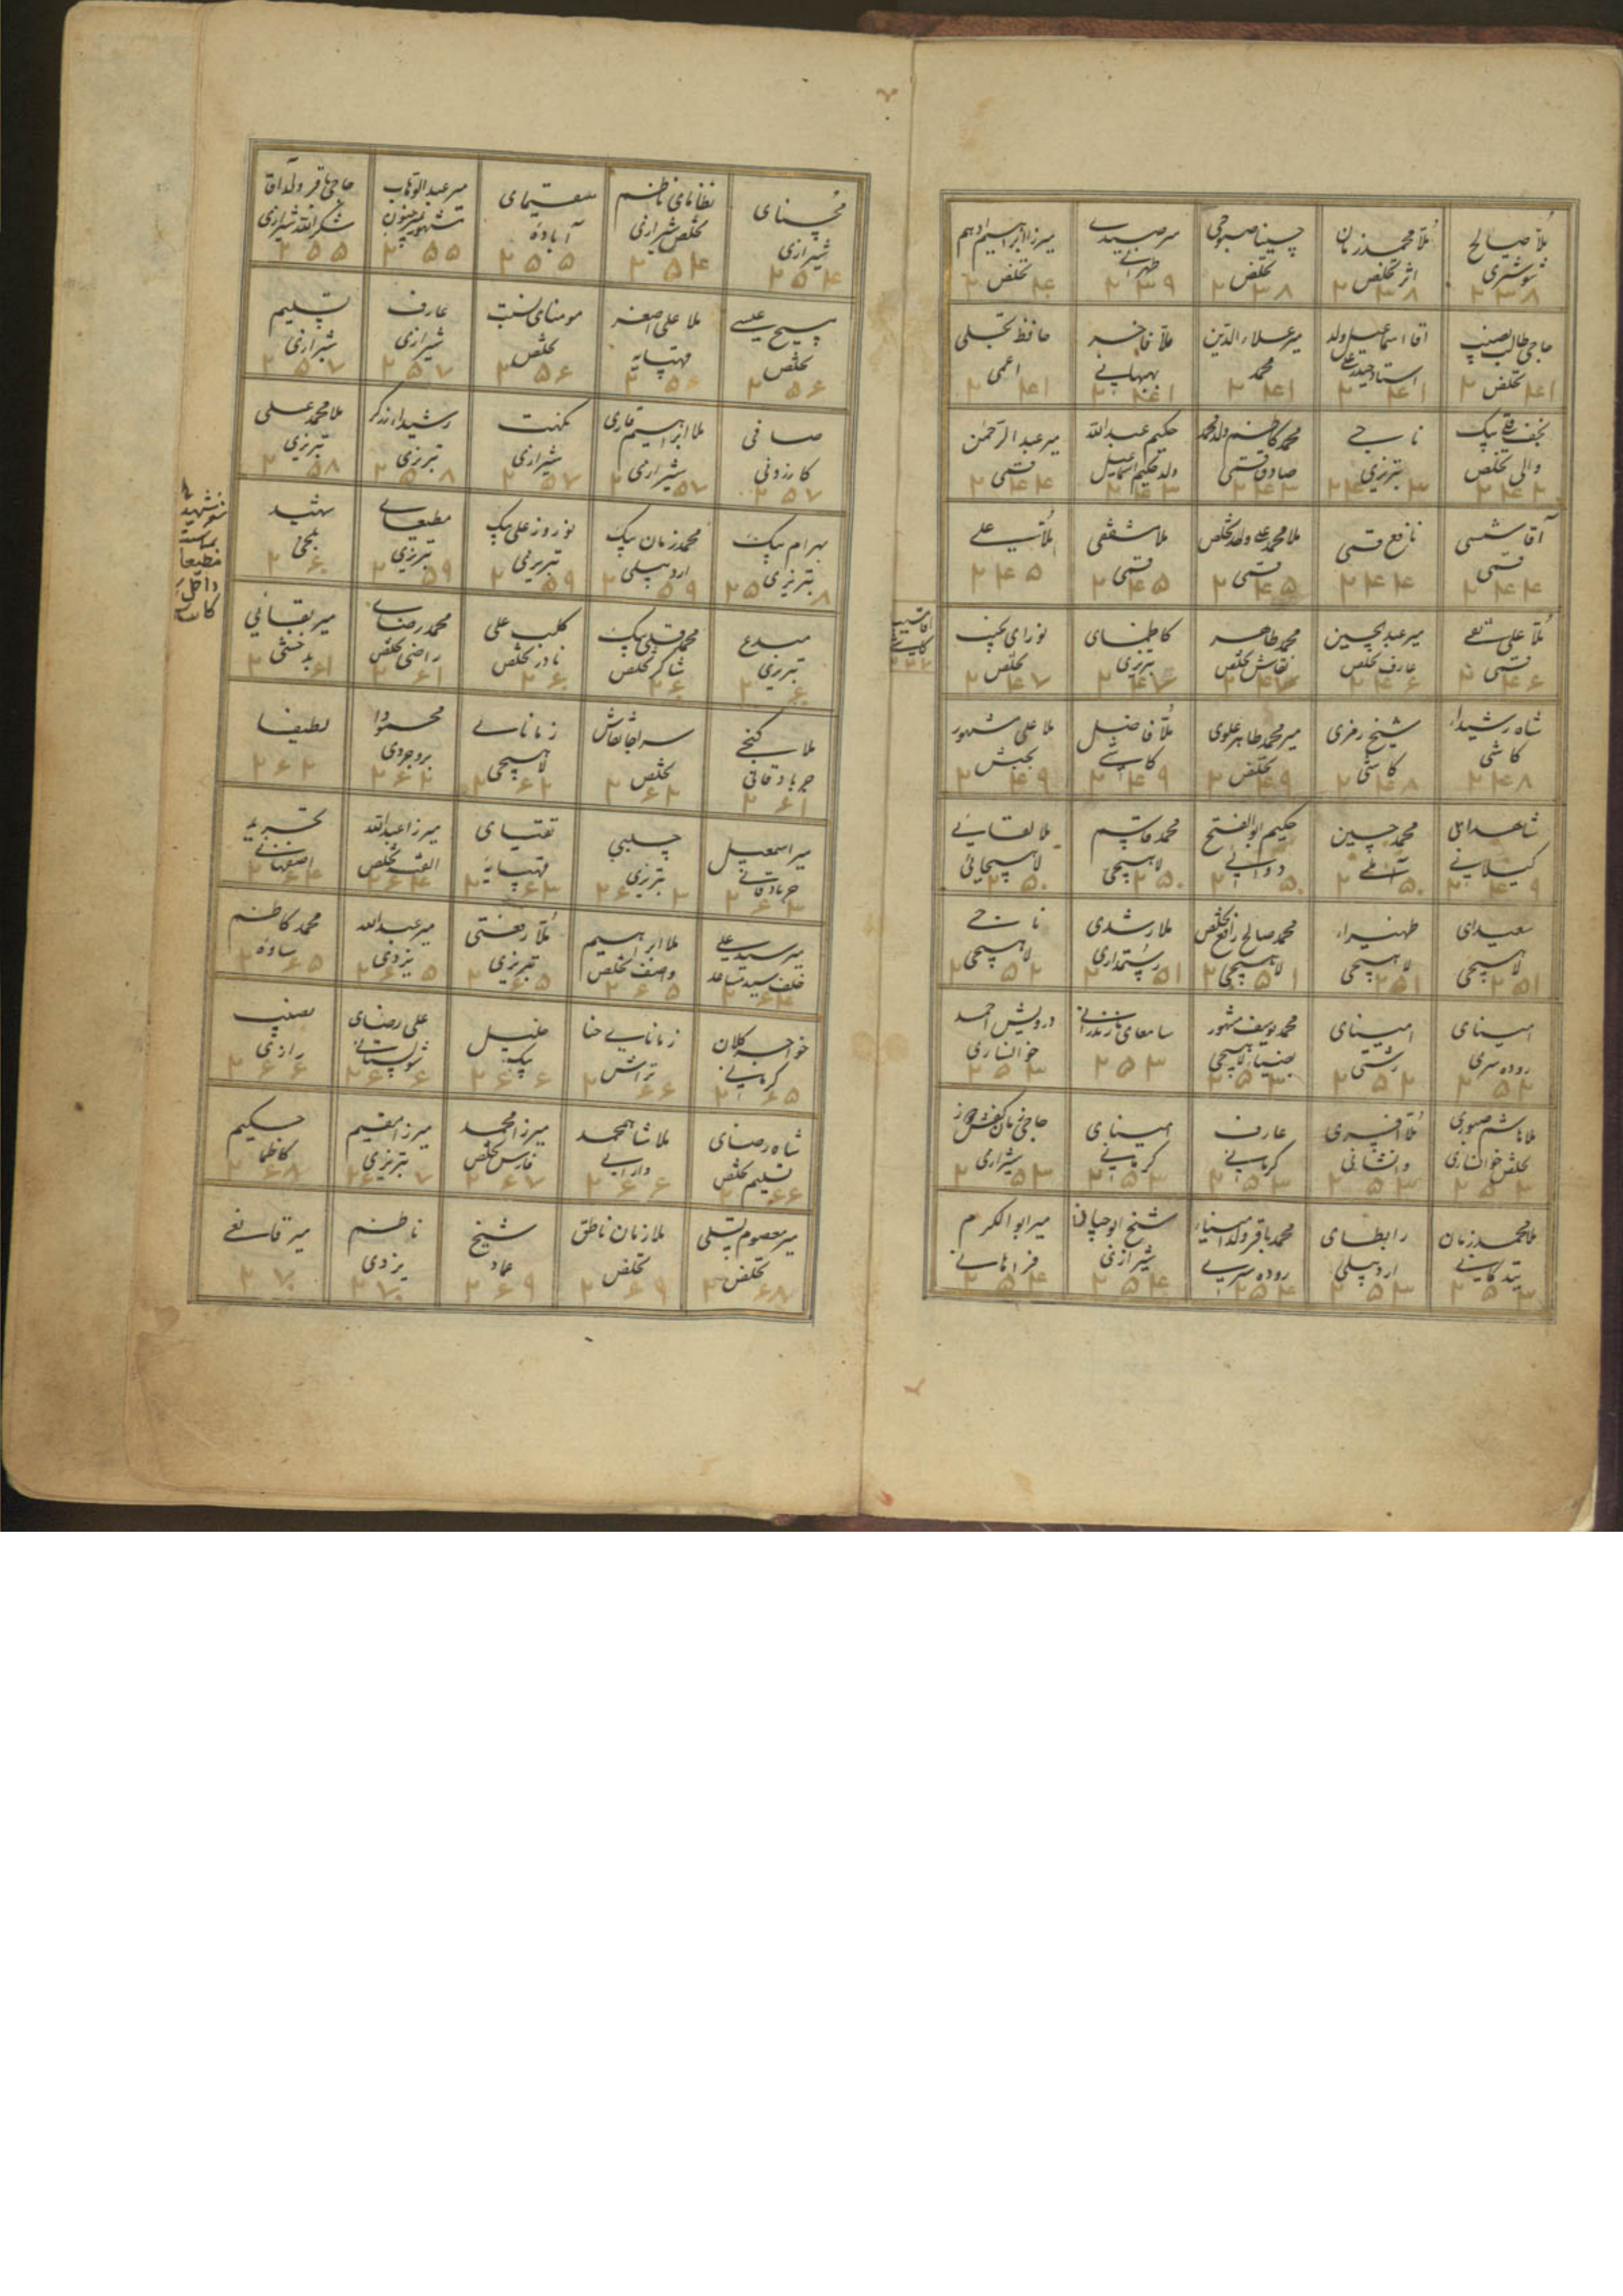 ملا صالح
شوشتری
۲۳۸
ملا محمد زمان
اثر تخلص
۲۳۸
حسینا صبوحی
تخلص
۲۳۸
میر صیدی
طهرانی
۲۳۹
میرزا ابراهیم ادهم
تخلص
حاجی طالب نصیب
تخلص
۲۴۱
آقا اسماعیل ولد
استاد حیدر علی
۲۴۱
میر علاء الدین
محمد
۲۴۱
ملا فاخر
بهبهانی
۲۴۱
حافظ تجلی
اعمی
۲۴۱
نجف قلی بیک
والی تخلص
ناجی
تبریزی
محمد کاظم ولد محمد
صادق قمی
۲۴۳
حکیم عبدالله
ولد حکیم اسماعیل
۲۴۳
میر عبدالرحمن
قمی
۲۴۴
آقا شمسی
قمی
۲۴۴
نافع قمی
۲۴۴
ملا محمد علی واحد تخلص
قمی
۲۴۵
ملا مشفقی
قمی
۲۴۵
علی
۲۴۵
ملا علی نقی
قمی
۲۴۶
میر عبدالحسین
عارف تخلص
۲۴۶
محمد طاهر
نقاش تخلص
کاظمای
تبریزی
۲۴۷
نورای نجیب
تخلص
۲۴۷
شاه رشیداء
کاشی
۲۴۸
شیخ رمزی
کاشی
۲۴۸
میر محمد طاهر علوی
تخلص
۲۴۹
ملا فاضل
کاشی
۲۴۹
ملا علی مشهور
بجبش
۲۴۹
شاهدای
گیلانی
۲۴۹
محمد حسین
آملی
۲۵۰
حکیم ابوالفتح
دوایی
۲۵۰
محمد قاسم
لاهیجی
۲۵۰
ملا لقایی
لاهیجانی
۲۵۰
سعیدای
لاهیجی
۲۵۱
ظهیراء
لاهیجی
۲۵۱
محمد صالح رافع تخلص
لاهیجی
۲۵۱
ملا رشدی
رستمداری
۲۵۱
ناجی
لاهیجی
۲۵۲
امینای
روده سری
۲۵۲
امینای
رشتی
۲۵۲
محمد یوسف مشهور
بضیاء لاهیجی
۲۵۲
سامعای مازندرانی
۲۵۳
درویش احمد
خوانساری
۲۵۳
ملا هاشم صبوری
تخلص خوانساری
۲۵۳
ملا افسری
وانشانی
۲۵۳
عارف
کرمانی
۲۵۳
امینای
کرمانی
۲۵۳
حاجی زمان کفش دوز
شیرازی
۲۵۳
ملا محمد زمان
۲۵۳
رابطای
اردبیلی
۲۵۳
محمد باقر ولد امیناء
روده سری
۲۵۴
شیخ ابو حیان
شیرازی
۲۵۴
میر ابوالکرم
فراهانی
۲۵۴
آقا نسیب
کاشی
محسنای
شیرازی
۲۵۴
نظامای ناظم
تخلص شیرازی
۲۵۴
مقیمای
آباده
۲۵۵
میر عبدالوهاب
مشهور بمیر مجنون
۲۵۵
حاجی باقر ولد آقا
شکرالله شیرازی
۲۵۵
مسیح عیسی
تخلص
۲۵۶
ملا علی اصغر
قهپایه
۲۵۶
مومنای نسبت
تخلص
۲۵۶
عارف
شیرازی
۲۵۷
تسلیم
شیرازی
۲۵۷
صافی
کازرونی
۲۵۷
ملا ابراهیم قاری
شیرازی
۲۵۷
نکهت
شیرازی
۲۵۷
رشیدا زرگر
تبریزی
۲۵۸
ملا محمد علی
تبریزی
۲۵۸
بهرام بیک
تبریزی
۲۵۸
محمد زمان بیک
اردبیلی
۲۵۹
نوروز علی بیک
تبریزی
۲۵۹
مطیعای
تبریزی
۲۵۹
شهید
بلخی
۲۶۰
مبدع
تبریزی
۲۶۰
محمد قلی بیک
شاکر تخلص
۲۶۰
کلب علی
نادر تخلص
۲۶۰
محمد رضای
راضی تخلص
۲۶۱
میر بقائی
بدخشی
۲۶۱
ملا گنجی
جربادقانی
۲۶۱
سراجا نقاش
تخلص
۲۶۲
زمانای
لاهیجی
۲۶۲
محمودا
بروجردی
۲۶۲
لطیفا
۲۶۲
میر اسمعیل
جربادقانی
۲۶۳
چلبی
تبریزی
۲۶۳
تقیای
قهپایه
۲۶۳
میرزا عبدالله
الفت تخلص
۲۶۴
تجرید
اصفهانی
۲۶۴
میر سید علی
خلف سید ساعد
۲۶۴
ملا ابراهیم
واصف تخلص
۲۶۵
ملا رفعتی
تبریزی
۲۶۵
میر عبدالله
یزدی
۲۶۵
محمد کاظم
ساوه
۲۶۵
خواجه کلان
کرمانی
۲۶۵
زمانای حنا
تراش
۲۶۶
خلیل
بیک
۲۶۶
علی رضای
شولستانی
۲۶۶
نصیب
رازی
۲۶۶
شاه رضای
تسلیم تخلص
۲۶۶
ملا شاه محمد
دارابی
۲۶۶
میرزا محمد
فارس تخلص
۲۶۷
میرزا مقیم
تبریزی
۲۶۷
حکیم
کاظما
۲۶۸
میر معصوم تسلی
تخلص
۲۶۸
ملا زمان ناطق
تخلص
۲۶۹
شیخ
عماد
۲۶۹
ناظم
یزدی
۲۷۰
میر قانعی
۲۷۰